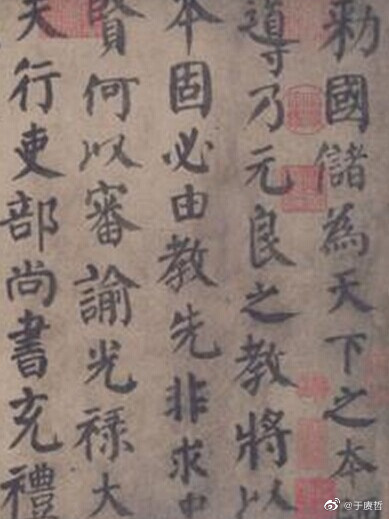 勑國儲為天下之本
導乃元良之教將以
本固必由教先非求
賢何以審諭光祿大
夫行吏部尚書充禮
@于赓哲